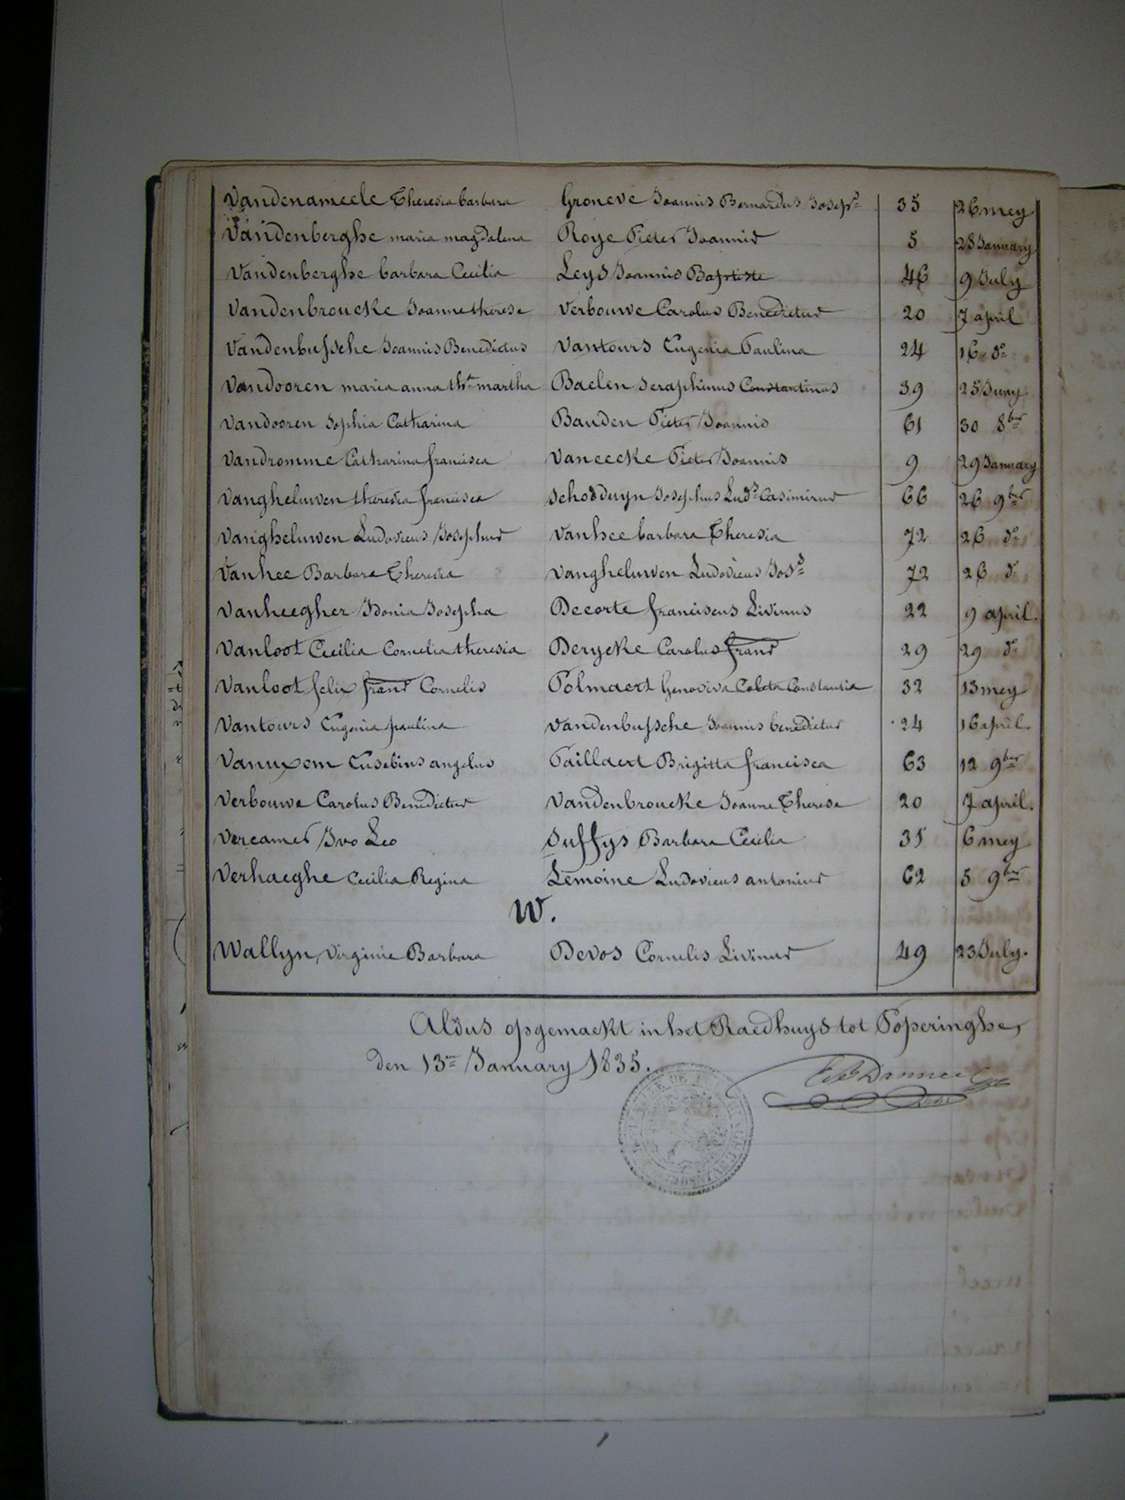 Vandenameele Theresia barbara Groneve Joannis Bernardus Joseph 35 26 mey
Vandenberghe maria magdalena Roye Pieter Joannis 5 28 January
Vandenberghe barbara Cecilia Leys Joannis Baptiste 46 9 July
Vandenbroucke Joanne therese Verbouwe Carolus Benedictus 20 7 april
Vandenbussche Joannis Benedictus Vantours Eugenia Paulina 24 16 do
Vandooren maria anna tha martha Baelen Seraphinus Constantinus 39 25 Juny
Vandooren Sophia Catharina Bauden Pieter Joannis 61 30 8ber
Vandromme Catharina francisca Vaneecke Pieter Joannis 9 29 January
Vangheluwen theresia francisca Schodduyn Josephus Luds Casimirus 66 26 9ber
Vangheluwen Ludovicus Josephus Vanhee barbara Theresia 72 26 do
Vanhee Barbara Theresia Vangheluwen Ludovicus Josd 72 26 do
Vanheegher Idonia Josepha Decorte franciscus Livinus 22 9 april.
Vanloot Cecilia Cornelia theresia Derycke Carolus frans 29 29 do
Vanloot felix frans Cornelis Polmaert Genoviva Coleta Constantia 32 13 mey
Vantours Eugenia paulina Vandenbussche Joannis benedictus 24 16 april.
Vanuxem Eusebius angelus Paillaert Brigitta francisca 63 12 9ber
Verbouwe Carolus Benedictus Vandenbroucke Joanne Therese 20 7 april.
Vercamer Ivo Leo Suffys Barbara Cecilia 35 6 mey
Verhaeghe Cecilia Regina Lemoine Ludovicus antonius 62 5 9ber
W.
Wallyn, Virginie Barbara Devos Cornelis Livinus 49 23 July.
Aldus opgemaekt in het Raedhuys tot Poperinghe,
den 13en January 1835.